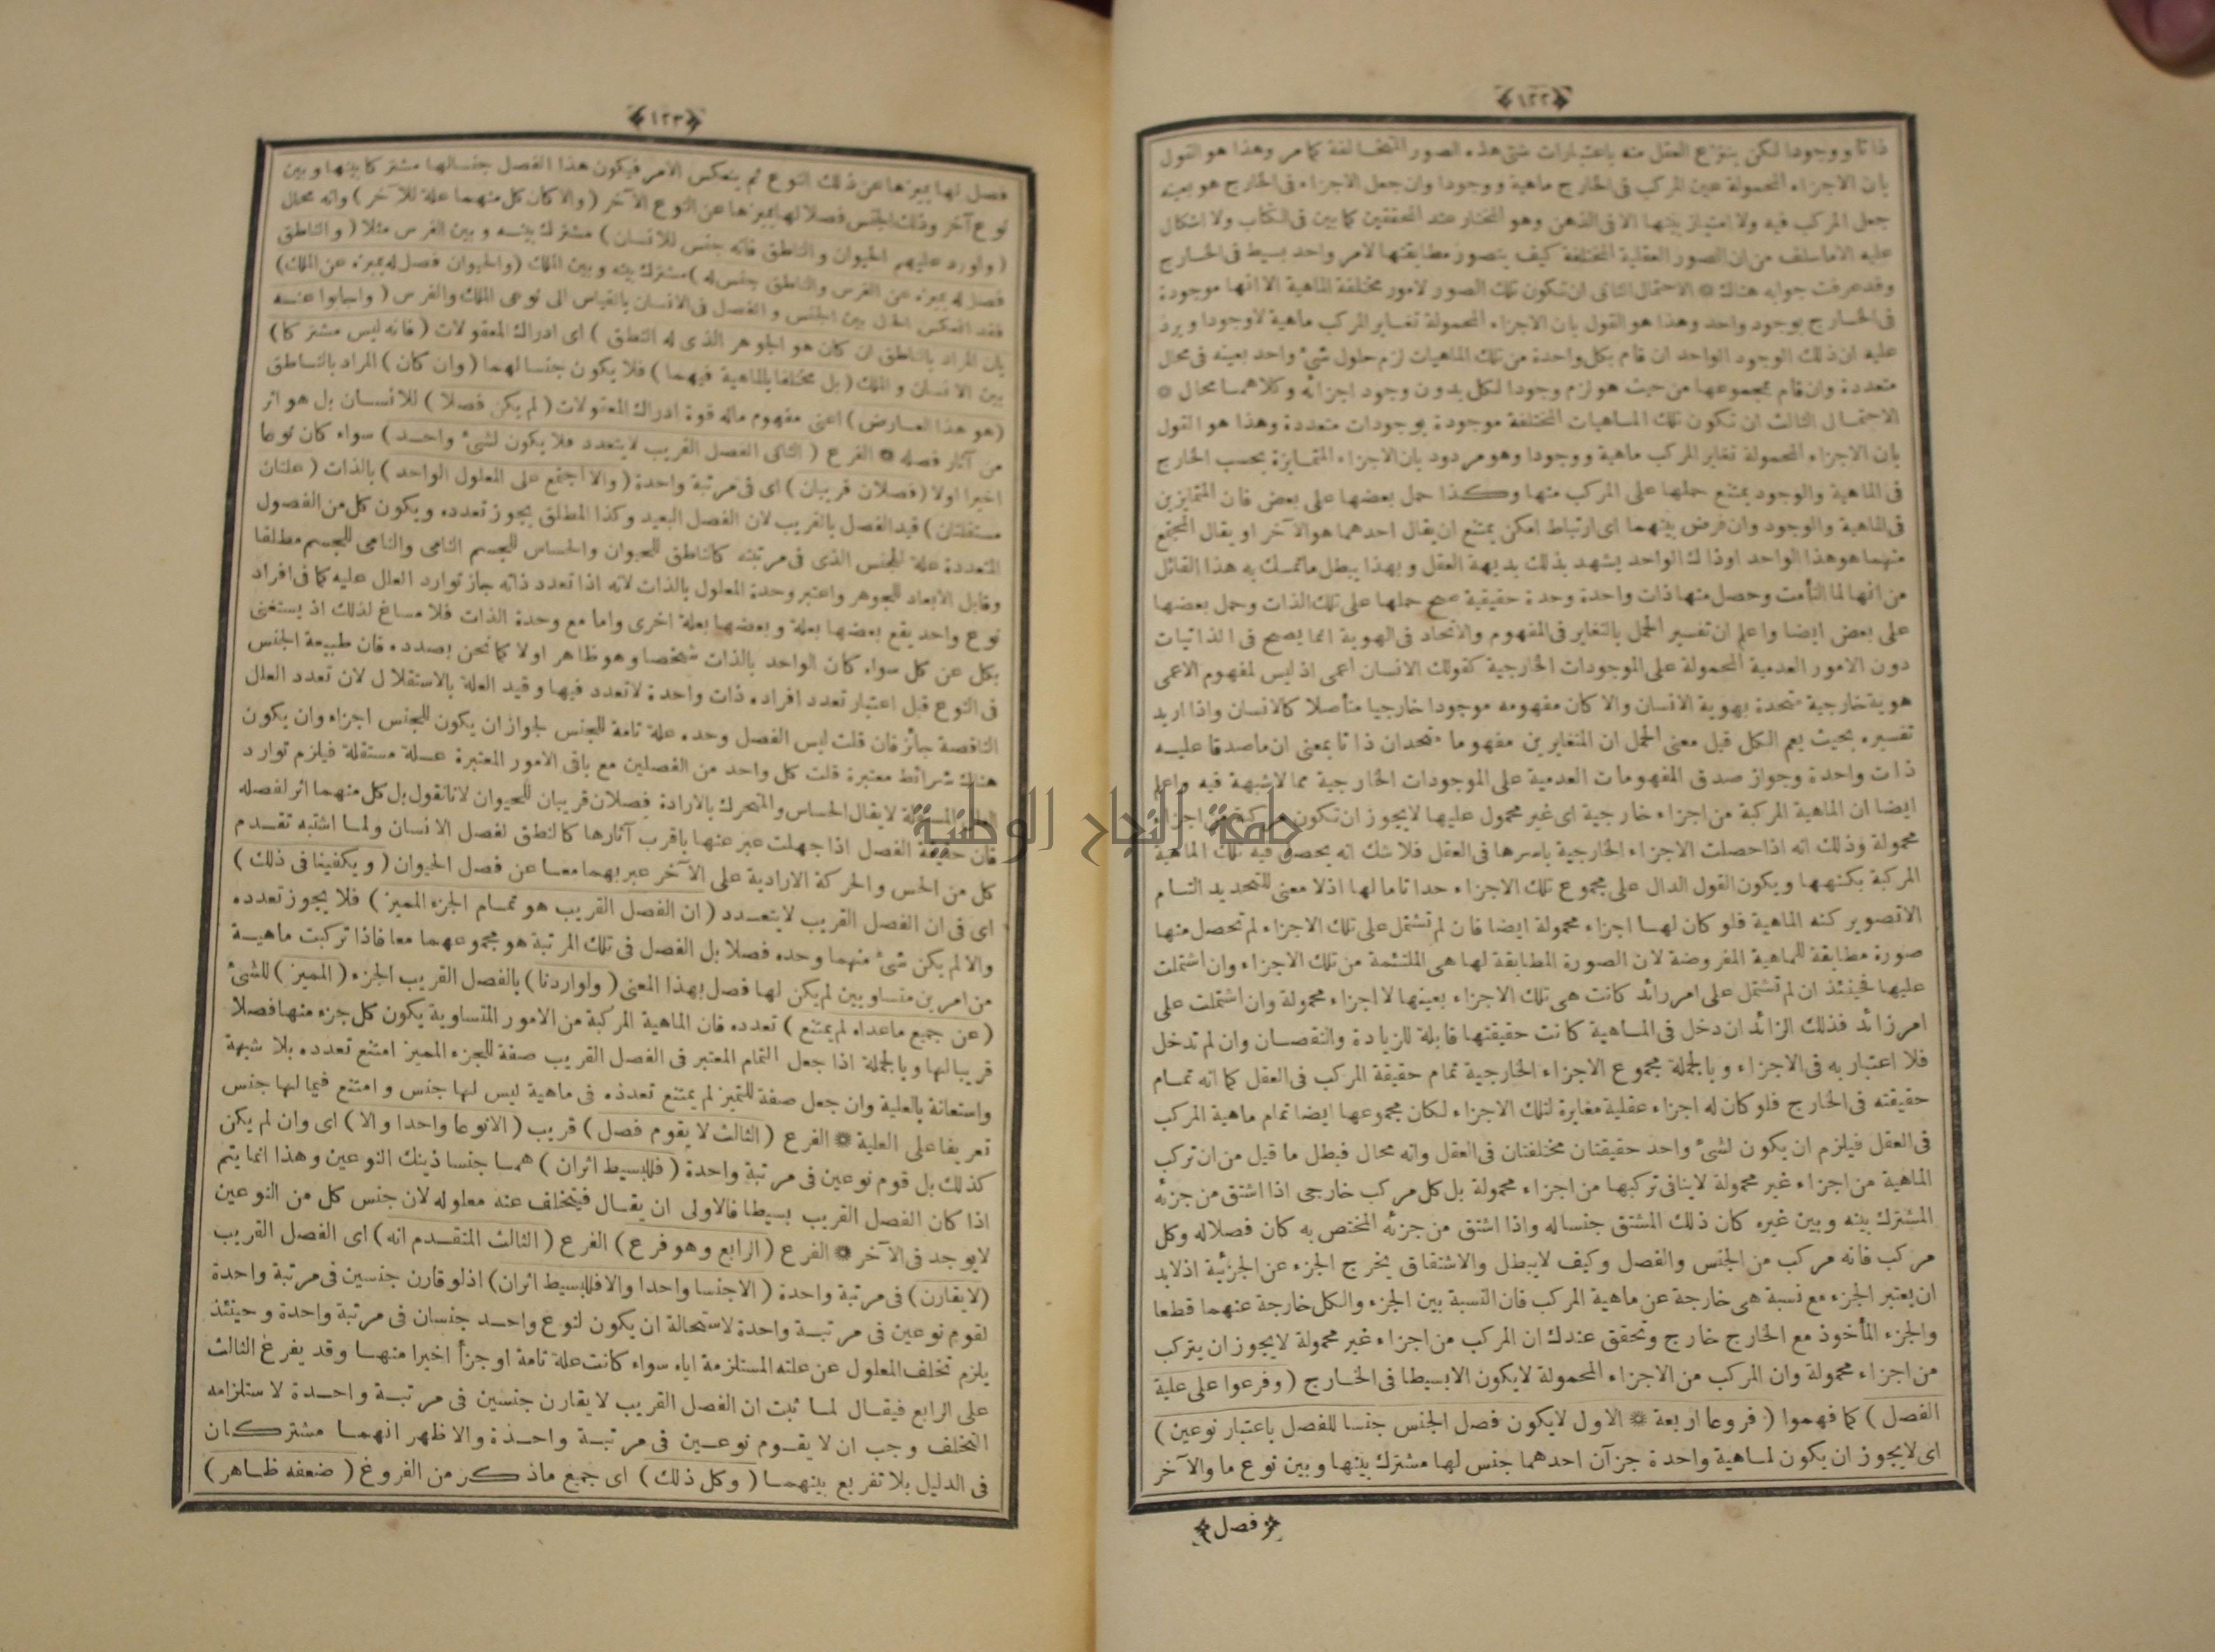 ﴿١٢٢﴾
ذاتا ووجودا لكن ينتزع العقل منه باعتبارات شتى هذه الصور المتخالفة كما مر وهذا هو القول
بان الاجزاء المحمولة عين المركب فى الخارج ماهية ووجودا وان جعل الاجزاء فى الخارج هو بعينه
جعل المركب فيه ولا امتياز بينها الا فى الذهن وهو المختار عند المحققين كما بين فى الكتاب ولا اشكال
عليه الا ما سلف من ان الصور العقلية المختلفة كيف يتصور مطابقتها لامر واحد بسيط فى الخارج
وقد عرفت جوابه هناك * الاحتمال الثانى ان تكون تلك الصور لامور مختلفة الماهية الا انها موجودة
فى الخارج بوجود واحد وهذا هو القول بان الاجزاء المحمولة تغاير المركب ماهية لا وجودا ويرد
عليه ان ذلك الوجود الواحد ان قام بكل واحدة من تلك الماهيات لزم حلول شىء واحد بعينه فى محال
متعددة وان قام بمجموعها من حيث هو لزم وجود الكل بدون وجود اجزائه وكلاهما محال *
الاحتمال الثالث ان تكون تلك الماهيات المختلفة موجودة بوجودات متعددة وهذا هو القول
بان الاجزاء المحمولة تغاير المركب ماهية ووجودا وهو مردود بان الاجزاء المتمايزة بحسب الخارج
فى الماهية والوجود يمتنع حملها على المركب منها وكذا حمل بعضها على بعض فان المتمايزين
فى الماهية والوجود وان فرض بينهما اى ارتباط امكن يمتنع ان يقال احدهما هو الآخر او يقال المجتمع
منهما هو هذا الواحد او ذاك الواحد يشهد بذلك بديهة العقل وبهذا يبطل ما تمسك به هذا القائل
من انها لما التأمت وحصل منها ذات واحدة وحدة حقيقية صح حملها على تلك الذات وحمل بعضها
على بعض ايضا واعلم ان تفسير الحمل بالتغاير فى المفهوم والاتحاد فى الهوية انما يصح فى الذاتيات
دون الامور العدمية المحمولة على الموجودات الخارجية كقولك الانسان اعمى اذ ليس لمفهوم الاعمى
هوية خارجية متحدة بهوية الانسان والا كان مفهومه موجودا خارجيا متأصلا كالانسان واذا اريد
تفسيره بحيث يعم الكل قيل معنى الحمل ان المتغايرين مفهوما متحدان ذاتا بمعنى ان ما صدقا عليه
ذات واحدة وجواز صدق المفهومات العدمية على الموجودات الخارجية مما لا شبهة فيه واعلم
ايضا ان الماهية المركبة من اجزاء خارجية اى غير محمول عليها لا يجوز ان تكون مركبة من اجزاء
محمولة وذلك انه اذا حصلت الاجزاء الخارجية باسرها فى العقل فلا شك انه يحصل فيه تلك الماهية
المركبة بكنهها ويكون القول الدال على مجموع تلك الاجزاء حدا تاما لها اذ لا معنى للتحديد التام
الا تصوير كنه الماهية فلو كان لها اجزاء محمولة ايضا فان لم تشتمل على تلك الاجزاء لم تحصل منها
صورة مطابقة للماهية المفروضة لان الصورة المطابقة لها هى الملتئمة من تلك الاجزاء وان اشتملت
عليها فحينئذ ان لم تشتمل على امر زائد كانت هى تلك الاجزاء بعينها لا اجزاء محمولة وان اشتملت على
امر زائد فذلك الزائد ان دخل فى الماهية كانت حقيقتها قابلة للزيادة والنقصان وان لم تدخل
فلا اعتبار به فى الاجزاء وبالجملة مجموع الاجزاء الخارجية تمام حقيقة المركب فى العقل كما انه تمام
حقيقته فى الخارج فلو كان له اجزاء عقلية مغايرة لتلك الاجزاء لكان مجموعها ايضا تمام ماهية المركب
فى العقل فيلزم ان يكون لشىء واحد حقيقتان مختلفتان فى العقل وانه محال فبطل ما قيل من ان تركب
الماهية من اجزاء غير محمولة لا ينافى تركبها من اجزاء محمولة بل كل مركب خارجى اذا اشتق من جزئه
المشترك بينه وبين غيره كان ذلك المشتق جنسا له واذا اشتق من جزئه المختص به كان فصلا له وكل
مركب فانه مركب من الجنس والفصل وكيف لا يبطل والاشتقاق يخرج الجزء عن الجزئية اذ لا بد
ان يعتبر الجزء مع نسبة هى خارجة عن ماهية المركب فان النسبة بين الجزء والكل خارجة عنهما قطعا
والجزء المأخوذ مع الخارج خارج وتحقق عندك ان المركب من اجزاء غير محمولة لا يجوز ان يتركب
من اجزاء محمولة وان المركب من الاجزاء المحمولة لا يكون الا بسيطا فى الخارج ( وفرعوا على علية
الفصل ) كما فهموا ( فروعا اربعة * الاول لا يكون فصل الجنس جنسا للفصل باعتبار نوعين )
اى لا يجوز ان يكون لماهية واحدة جزآن احدهما جنس لها مشترك بينها وبين نوع ما والآخر
﴿فصل﴾
﴿١٢٣﴾
فصل لها يميزها عن ذلك النوع ثم ينعكس الامر فيكون هذا الفصل جنسا لها مشتركا بينها وبين
نوع آخر وذلك الجنس فصلا لها يميزها عن النوع الآخر ( والا كان كل منهما علة للآخر ) وانه محال
( واورد عليهم الحيوان والناطق فانه جنس للانسان ) مشترك بينه وبين الفرس مثلا ( والناطق
فصل له يميزه عن الفرس والناطق جنس له ) مشترك بينه وبين الملك ( والحيوان فصل له يميزه عن الملك )
فقد انعكس الحال بين الجنس والفصل فى الانسان بالقياس الى نوعى الملك والفرس ( واجابوا عنه
بان المراد بالناطق ان كان هو الجوهر الذى له النطق ) اى ادراك المعقولات ( فانه ليس مشتركا )
بين الانسان والملك ( بل مختلفا بالماهية فيهما ) فلا يكون جنسا لهما ( وان كان ) المراد بالناطق
( هو هذا العارض ) اعنى مفهوم ماله قوة ادراك المعقولات ( لم يكن فصلا ) للانسان بل هو اثر
من آثار فصله * الفرع ( الثانى الفصل القريب لا يتعدد فلا يكون لشىء واحد ) سواء كان نوعا
اخيرا اولا ( فصلان قريبان ) اى فى مرتبة واحدة ( والا اجتمع على المعلول الواحد ) بالذات ( علتان
مستقلتان ) قيد الفصل بالقريب لان الفصل البعيد وكذا المطلق يجوز تعدده ويكون كل من الفصول
المتعددة علة للجنس الذى فى مرتبته كالناطق للحيوان والحساس للجسم النامى والنامى للجسم مطلقا
وقابل الابعاد للجوهر واعتبر وحدة المعلول بالذات لانه اذا تعدد ذاته جاز توارد العلل عليه كما فى افراد
نوع واحد يقع بعضها بعلة وبعضها بعلة اخرى واما مع وحدة الذات فلا مساغ لذلك اذ يستغنى
بكل عن كل سواء كان الواحد بالذات شخصا وهو ظاهر اولا كما نحن بصدده فان طبيعة الجنس
فى النوع قبل اعتبار تعدد افراده ذات واحدة لا تعدد فيها وقيد العلة بالاستقلال لان تعدد العلل
الناقصة جائز فان قلت ليس الفصل وحده علة تامة للجنس لجواز ان يكون للجنس اجزاء وان يكون
هناك شرائط معتبرة قلت كل واحد من الفصلين مع باقى الامور المعتبرة علة مستقلة فيلزم توارد
العلل المستقلة لا يقال الحساس والمتحرك بالارادة فصلان قريبان للحيوان لانا نقول بل كل منهما اثر لفصله
فان حقيقة الفصل اذا جهلت عبر عنها باقرب آثارها كالنطق لفصل الانسان ولما اشتبه تقدم
كل من الحس والحركة الارادية على الآخر عبر بهما معا عن فصل الحيوان ( ويكفينا فى ذلك )
اى فى ان الفصل القريب لا يتعدد ( ان الفصل القريب هو تمام الجزء المميز ) فلا يجوز تعدده
والا لم يكن شىء منهما وحده فصلا بل الفصل فى تلك المرتبة هو مجموعهما معا فاذا تركبت ماهية
من امرين متساويين لم يكن لها فصل بهذا المعنى ( ولو اردنا ) بالفصل القريب الجزء ( المميز ) للشىء
( عن جميع ماعداه لم يمتنع ) تعدده فان الماهية المركبة من الامور المتساوية يكون كل جزء منها فصلا
قريبا لها وبالجملة اذا جعل التمام المعتبر فى الفصل القريب صفة للجزء المميز امتنع تعدده بلا شبهة
واستعانة بالعلية وان جعل صفة للتميز لم يمتنع تعدده فى ماهية ليس لها جنس وامتنع فيما لها جنس
تعريفا على العلية * الفرع ( الثالث لا يقوم فصل ) قريب ( الا نوعا واحدا والا ) اى وان لم يكن
كذلك بل قوم نوعين فى مرتبة واحدة ( فللبسيط اثران ) هما جنسا ذينك النوعين وهذا انما يتم
اذا كان الفصل القريب بسيطا فالاولى ان يقال فيتخلف عنه معلوله لان جنس كل من النوعين
لا يوجد فى الآخر * الفرع ( الرابع وهو فرع ) الفرع ( الثالث المتقدم انه ) اى الفصل القريب
( لا يقارن ) فى مرتبة واحدة ( الا جنسا واحدا والا فللبسيط اثران ) اذ لو قارن جنسين فى مرتبة واحدة
لقوم نوعين فى مرتبة واحدة لاستحالة ان يكون لنوع واحد جنسان فى مرتبة واحدة وحينئذ
يلزم تخلف المعلول عن علته المستلزمة اياه سواء كانت علة تامة او جزأ اخيرا منها وقد يفرغ الثالث
على الرابع فيقال لما ثبت ان الفصل القريب لا يقارن جنسين فى مرتبة واحدة لاستلزامه
التخلف وجب ان لا يقوم نوعين فى مرتبة واحدة والاظهر انهما مشتركان
فى الدليل بلا تفريع بينهما ( وكل ذلك ) اى جميع ماذكر من الفروغ ( ضعفه ظاهر )
جامعة النجاح الوطنية